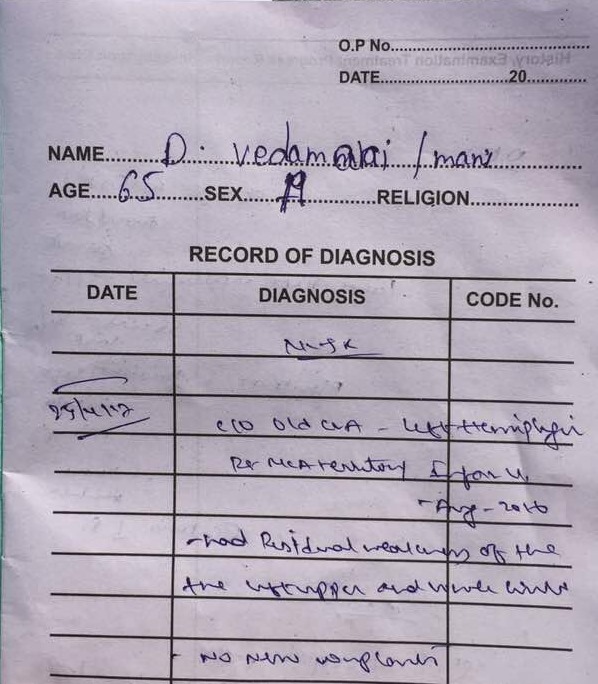 O.P No.
DATE 20
NAME D. Vedamalai / mani
AGE 65 SEX RELIGION
RECORD OF DIAGNOSIS
DATE DIAGNOSIS CODE No.
25/4/17
c/o Old CVA - left Hemiplegia
Rt MCA territory Infarct
- Aug - 2016
- had Residual weakness of the
the left upper and lower limb
- No new complaints